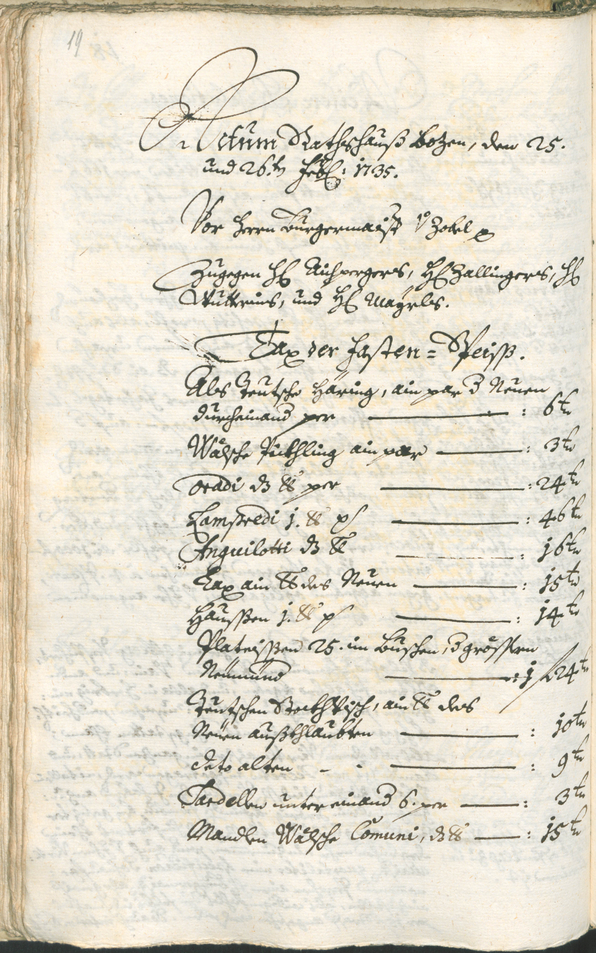 19
Actum Rathshauß Botzen, den 25.
und 26.tn Febr: 1735.
Vor Herrn Burgermaister v Zobel
Zugegen H Aichpergers, H Zallingers, H
Wuttrius, und H Mayrls.
Tax der Fasten=Speiss.
Als Teutsche Häring, ain par d Neuen
durcheinand per : 6 kr
Wälsche Pickhling ain par : 3 kr
oradi d lb per : 24 kr
Lampredi 1. lb p : 46 kr
Anguilotti d lb : 16 kr
Lax ain lb des Neuen : 15 kr
Haußen 1. lb p : 14 kr
Plateissen 25. im Buschen, d grössten
: 1 f 24 kr
Teutschen Stockhvisch, ain lb des
Neuen außthlaubten : 10 kr
deto alten - - : 9 kr
Sardellen untereinand 6. per : 3 kr
Mandlen Wälsche Comuni, d lb : 15 kr